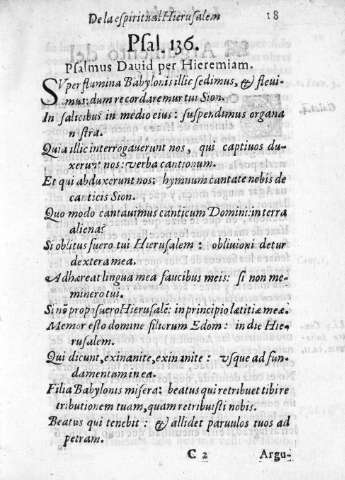 De la espiritual Hierusalem 18
Psal. 136.
Psalmus Dauid per Hieremiam.
SVper flumina Babylonis illic sedimus, & fleui-
mus: dum recordaremur tui Sion.
In salicibus in medio eius: suspendimus organa
nostra.
Quia illic interrogauerunt nos, qui captiuos du-
xerunt nos: verba cantionum.
Et qui abduxerunt nos: hymnum cantate nobis de
canticis Sion.
Quo modo cantauimus canticum Domini: in terra
aliena?
Si oblitus fuero tui Hierusalem: obliuioni detur
dextera mea.
Adhæreat lingua mea faucibus meis: si non me-
minero tui.
Si nõ proposuero Hierusalẽ: in principio lætitiæ meæ.
Memor esto domine filiorum Edom: in die Hie-
rusalem.
Qui dicunt, exinanite, exinanite: vsque ad fun-
damentum in ea.
Filia Babylonis misera: beatus qui retribuet tibi re
tributionem tuam, quam retribuisti nobis.
Beatus qui tenebit: & allidet paruulos tuos ad
petram.
C 2 Argu-